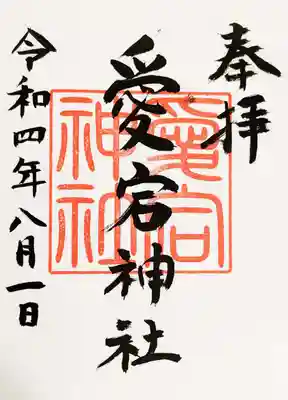 奉拝
愛宕神社
愛宕神社
令和四年八月一日